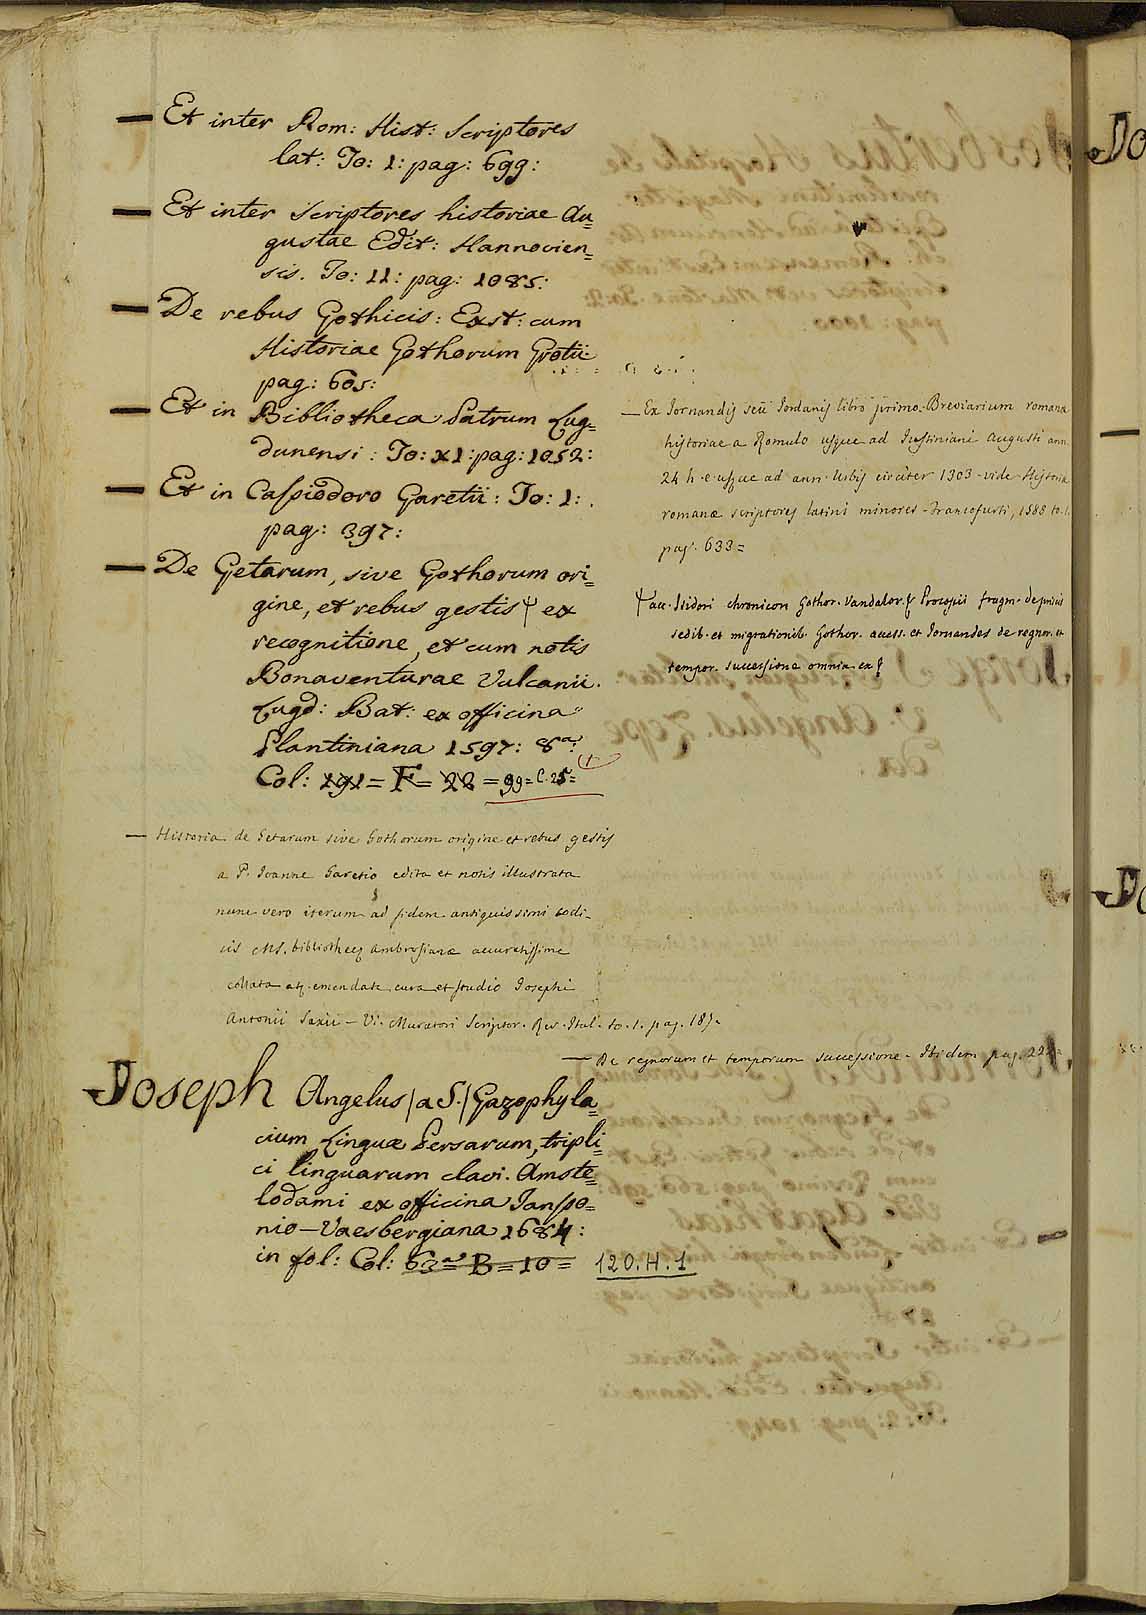 — Et inter Rom: Hist: Scriptores
lat: To: 1: pag: 699:
— Et inter Scriptores historiae Au=
gustae Edit: Hannovien=
sis. To: 11: pag: 1085:
— De rebus Gothicis: Exst: cum
Historiae Gothorum Grotii
pag: 605:
— Et in Bibliotheca Patrum Lug=
dunensi: To: x1: pag: 1052:
— Et in Cassiodoro Garetii: To: 1:
pag: 397:
— De Getarum, sive Gothorum ori=
gine, et rebus gestis ψ ex
recognitione, et cum notis
Bonaventurae Vulcanii.
Lugd: Bat: ex officina
Plantiniana 1597: 8ᵃ:
Col: 191 = F = 22 = 99 = C. 25 =
— Historia de Getarum sive Gothorum origine et rebus gestis
a P. Joanne Garetio edita et notis illustrata
nunc vero iterum ad fidem antiquissimi codi-
cis MS. bibliothecę Ambrosianæ accuratissime
collata atq. emendata cura et studio Josephi
Antonii Saxii — Vi. Muratori Scriptor. Rer. Ital. to. 1. pag. 187.
— De regnorum et temporum successione. Ibidem pag. 222=
— Ex Jornandis seu Jordanis libro primo. Breviarium romana
historiae a Romulo usque ad Justiniani Augusti ann.
24 h. e usque ad ann. Urbis circiter 1303 - vide Historia
romanæ scriptores latini minores - Francofurti, 1588 to. 1.
pag. 633 =
ψ acc. Isidori chronicon Gothor. Vandalor. & Procopii fragm. de priscis
sedib. et migrationib. Gothor. access. et Jornandes de regnor. et
tempor. successione omnia ex
Joseph Angelus /a S./ Gazophyla=
cium Linguæ Persarum, tripli=
ci linguarum clavi. Amste=
lodami ex officina Jansso=
nio—Vaesbergiana 1684:
in fol: Col: 63ᵃ = B = 10 = 120. H. 1